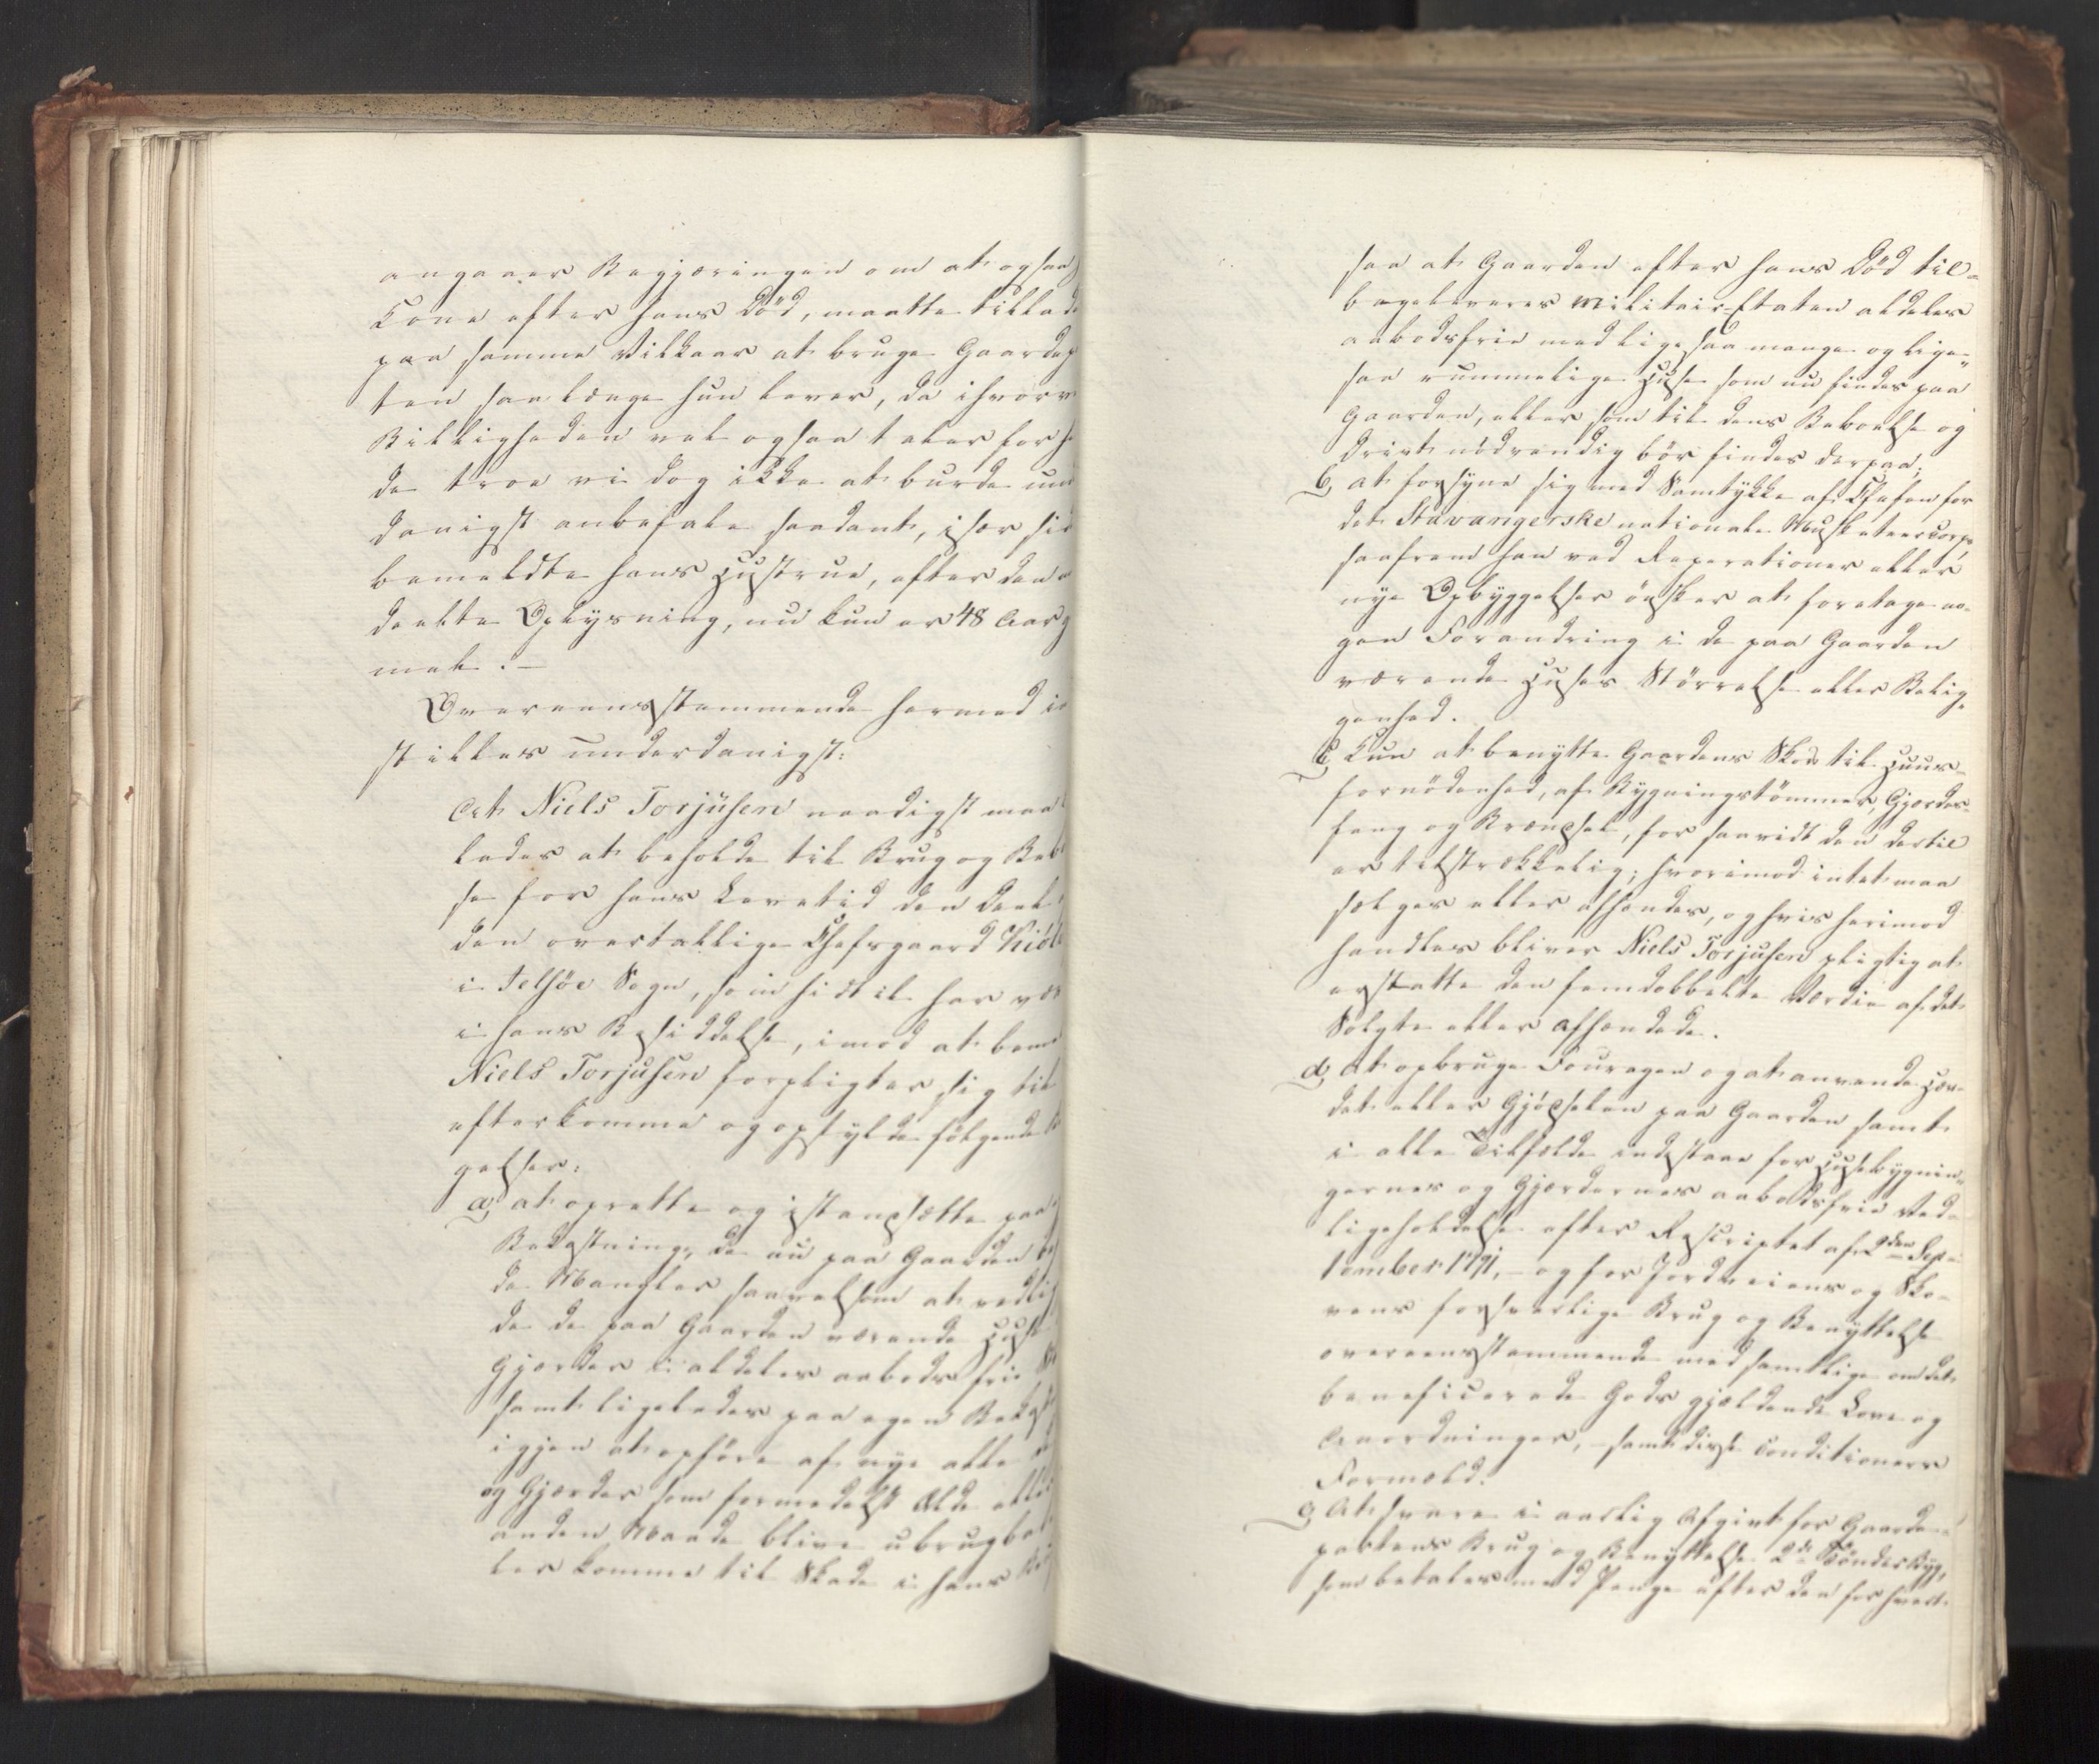 angaaer Begjæringen om at ogsaa
Kone efter hans Død, maatte tillade
paa samme Vilkaar at bruge Gaardep
ten saa længe hun lever, da ihvorv
Billigheden vel ogsaa taler for
de troe vi dog ikke at burde und
danigst anbefale saadant, især si
bemeldte hans Hustrue, efter den
deelte Oplysning, nu kun er 48 Aar g
mel. —
Overeensstemmende hermed i
stilles underdanigst:
At Niels Torjusen naadigst maa
lades at beholde til Brug og Beb
se for hans Levetid den Deel
den overtallige Chefsgaard Kiöl
i Jelsöe Sogn, som hidtil har vær
i hans Besiddelse, imod at bem
Niels Torjusen forpligter sig til
efterkomme og opfylde følgende
gelser:
a, at oprette og istandsætte paa
Bekostning, de nu paa Gaarden
de Mangler saavelsom at vedlig
de de paa Gaarden værende Huse
Gjerder i aldeles aabods frie
samt ligeledes paa egen Bekost
igjen at opføre af nye alle
og Gjerder som formedelst Ælde elle
anden Maade blive ubrugbar
ler komme til Skade i hans
saa at Gaarden efter hans Død til-
bageleveres Militair-Etaten aldeles
aabodsfrie med ligesaa mange og lige-
saa rummelige Huse som nu findes paa
Gaarden, eller som til dens Beboelse og
Drivt nødvendig bør findes derpaa;
b, at forsyne sig med Samtykke af Chefen for
det Stavangerske nationale Musketeercorps,
saafrem han ved Reparationer eller
nye Opbyggelser ønsker at foretage no-
gen Forandring i de paa Gaarden
værende Huses Størrelse eller Belig-
genhed.
c, Kun at benytte Gaardens Skov til Huus-
fornødenhed, af Bygningstømmer, Gjerdes-
fang og Brændsel, for saavidt den dertil
er tilstrækkelig; hvorimod intet maa
sælges eller afhændes, og hvis herimod
handles bliver Niels Torjusen pligtig at
erstatte den femdobbelte Værdie af det
Solgte eller afhændede.
d, at opbruge Fouragen og at anvende Hæv-
det eller Gjødselen paa Gaarden samt
i alle Tilfælde indestaae for Husebygnin-
gernes og Gjerdernes aabodsfrie Ved-
ligeholdelse efter Rescriptet af 2den Sep-
tember 1791, — og for Jordveiens og Sko-
vens forsvarlige Brug og Benyttelse
overeensstemmende med samtlige om det
beneficerede Gods gjældende Love og
Anordninger, — samt disse Conditioners
Formeld.
e, At svare i aarlig Afgivt for Gaarde-
partens Brug og Benyttelse 2de Tønder Byg,
som betales med Penge efter den for hvert